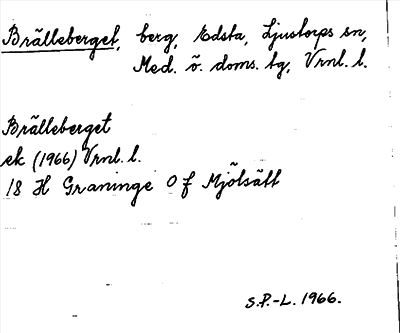 Brälleberget, berg, Edsta, Ljustorps sn,
Med. ö. doms. tg, Vrnl. l.
Brälleberget
ek (1966) Vrnl. l.
18 H Graninge 0 f Mjölsätt
S.P.-L. 1966.